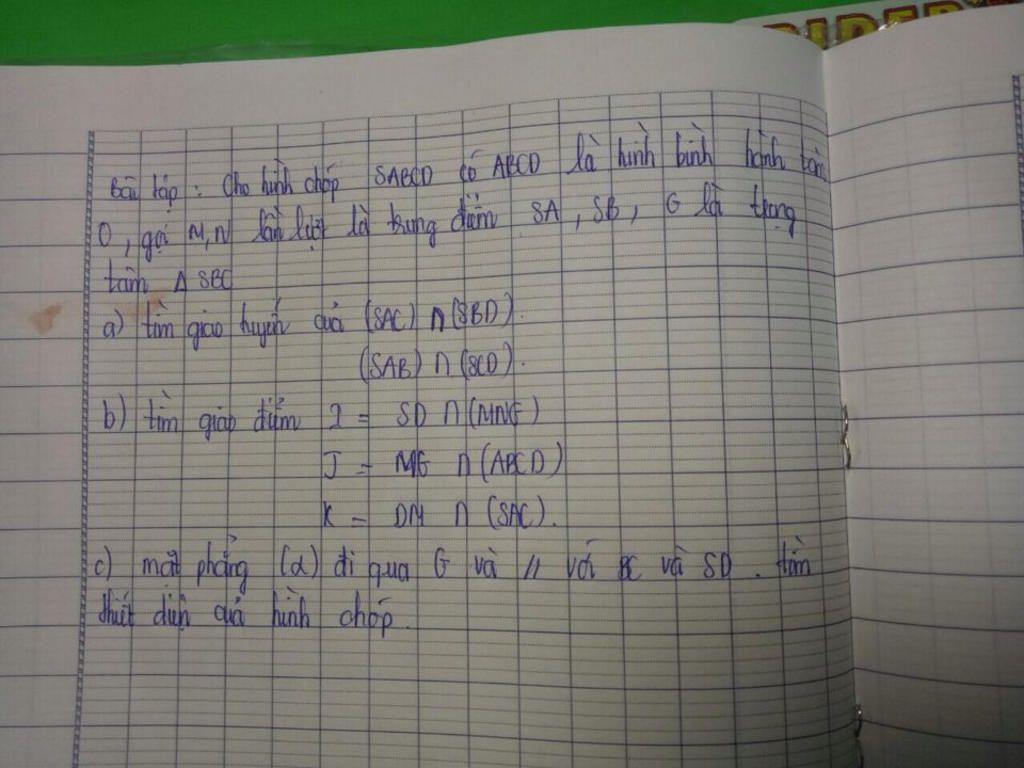 RIDER
Bài tập : Cho hình chóp SABCD có ABCD là hình bình hành tâm
O, gọi M,N lần lượt là trung điểm SA, SB, G là trọng
tâm Δ SBC
a) tìm giao tuyến của (SAC) ∩ (SBD).
(SAB) ∩ (SCD).
b) tìm giao điểm I = SD ∩ (MNG)
J = MG ∩ (ABCD)
K = DM ∩ (SAC).
c) mặt phẳng (α) đi qua G và // với BC và SD. tìm
thiết diện của hình chóp.